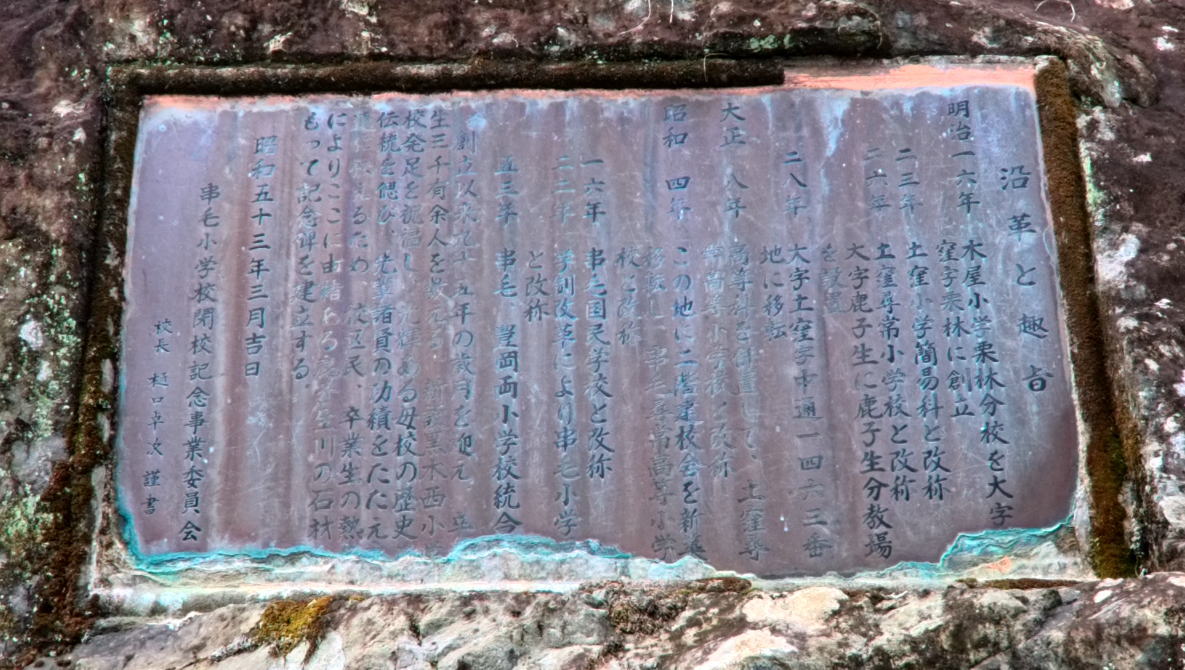 沿革と趣旨
明治一六年 木屋小学栗林分校を大字
窪字栗林に創立
二三年 土窪小学簡易科と改称
二六年 土窪尋常小学校と改称
大字鹿子生に鹿子生分教場
を設置
二八年 大字土窪字中通一四六三番
地に移転
大正 八年 高等科を併置して、土窪尋
常高等小学校と改称
昭和 四年 この地に二階建校舎を新築
移転し 串毛尋常高等小学
校と改称
一六年 串毛国民学校と改称
二二年 学制改革により串毛小学
と改称
五三年 串毛、豊岡両小学校統合
創立以来九十五年の歳月を迎え 卒
生三千有余人を数える 黒木西小
校発足を祝福し 光輝ある母校の歴史
伝統を偲び、先輩諸賢の功績をたたえ
るため 校区民、卒業生の熱
によりここに由緒ある 川の石材
もって記念碑を建立する
昭和五十三年三月吉日
串毛小学校閉校記念事業委員会
校長 樋口卓次 謹書